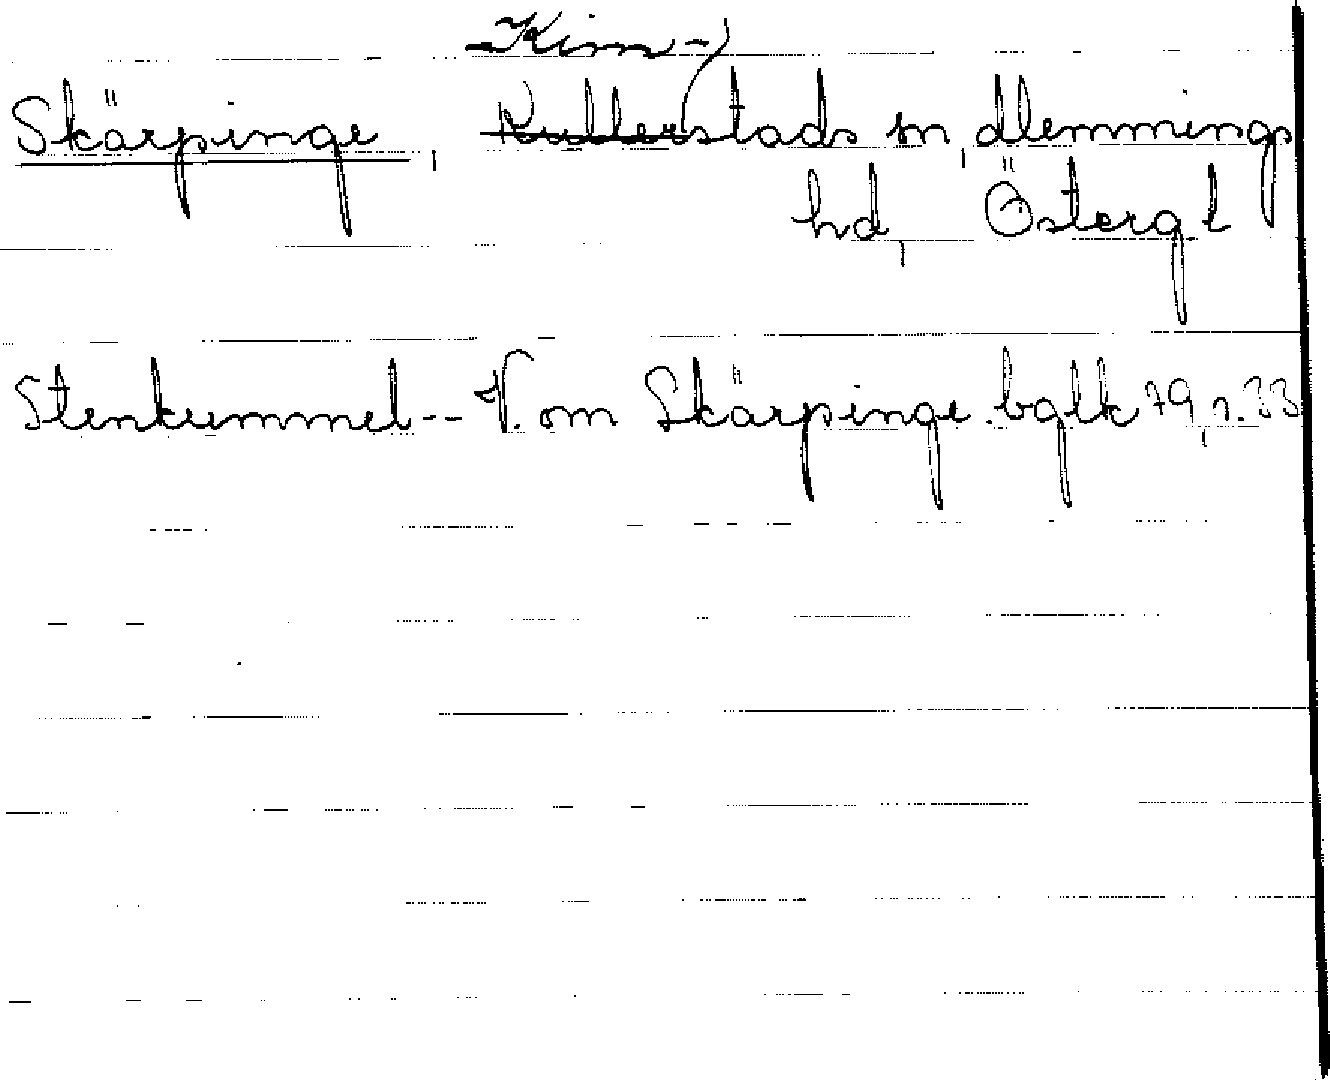 -Kim-
Skärpinge, Kullerstads sn, Memmings
hd, Östergl
Stenkummel-- V. om Skärpinge. bglk 79, s. 33